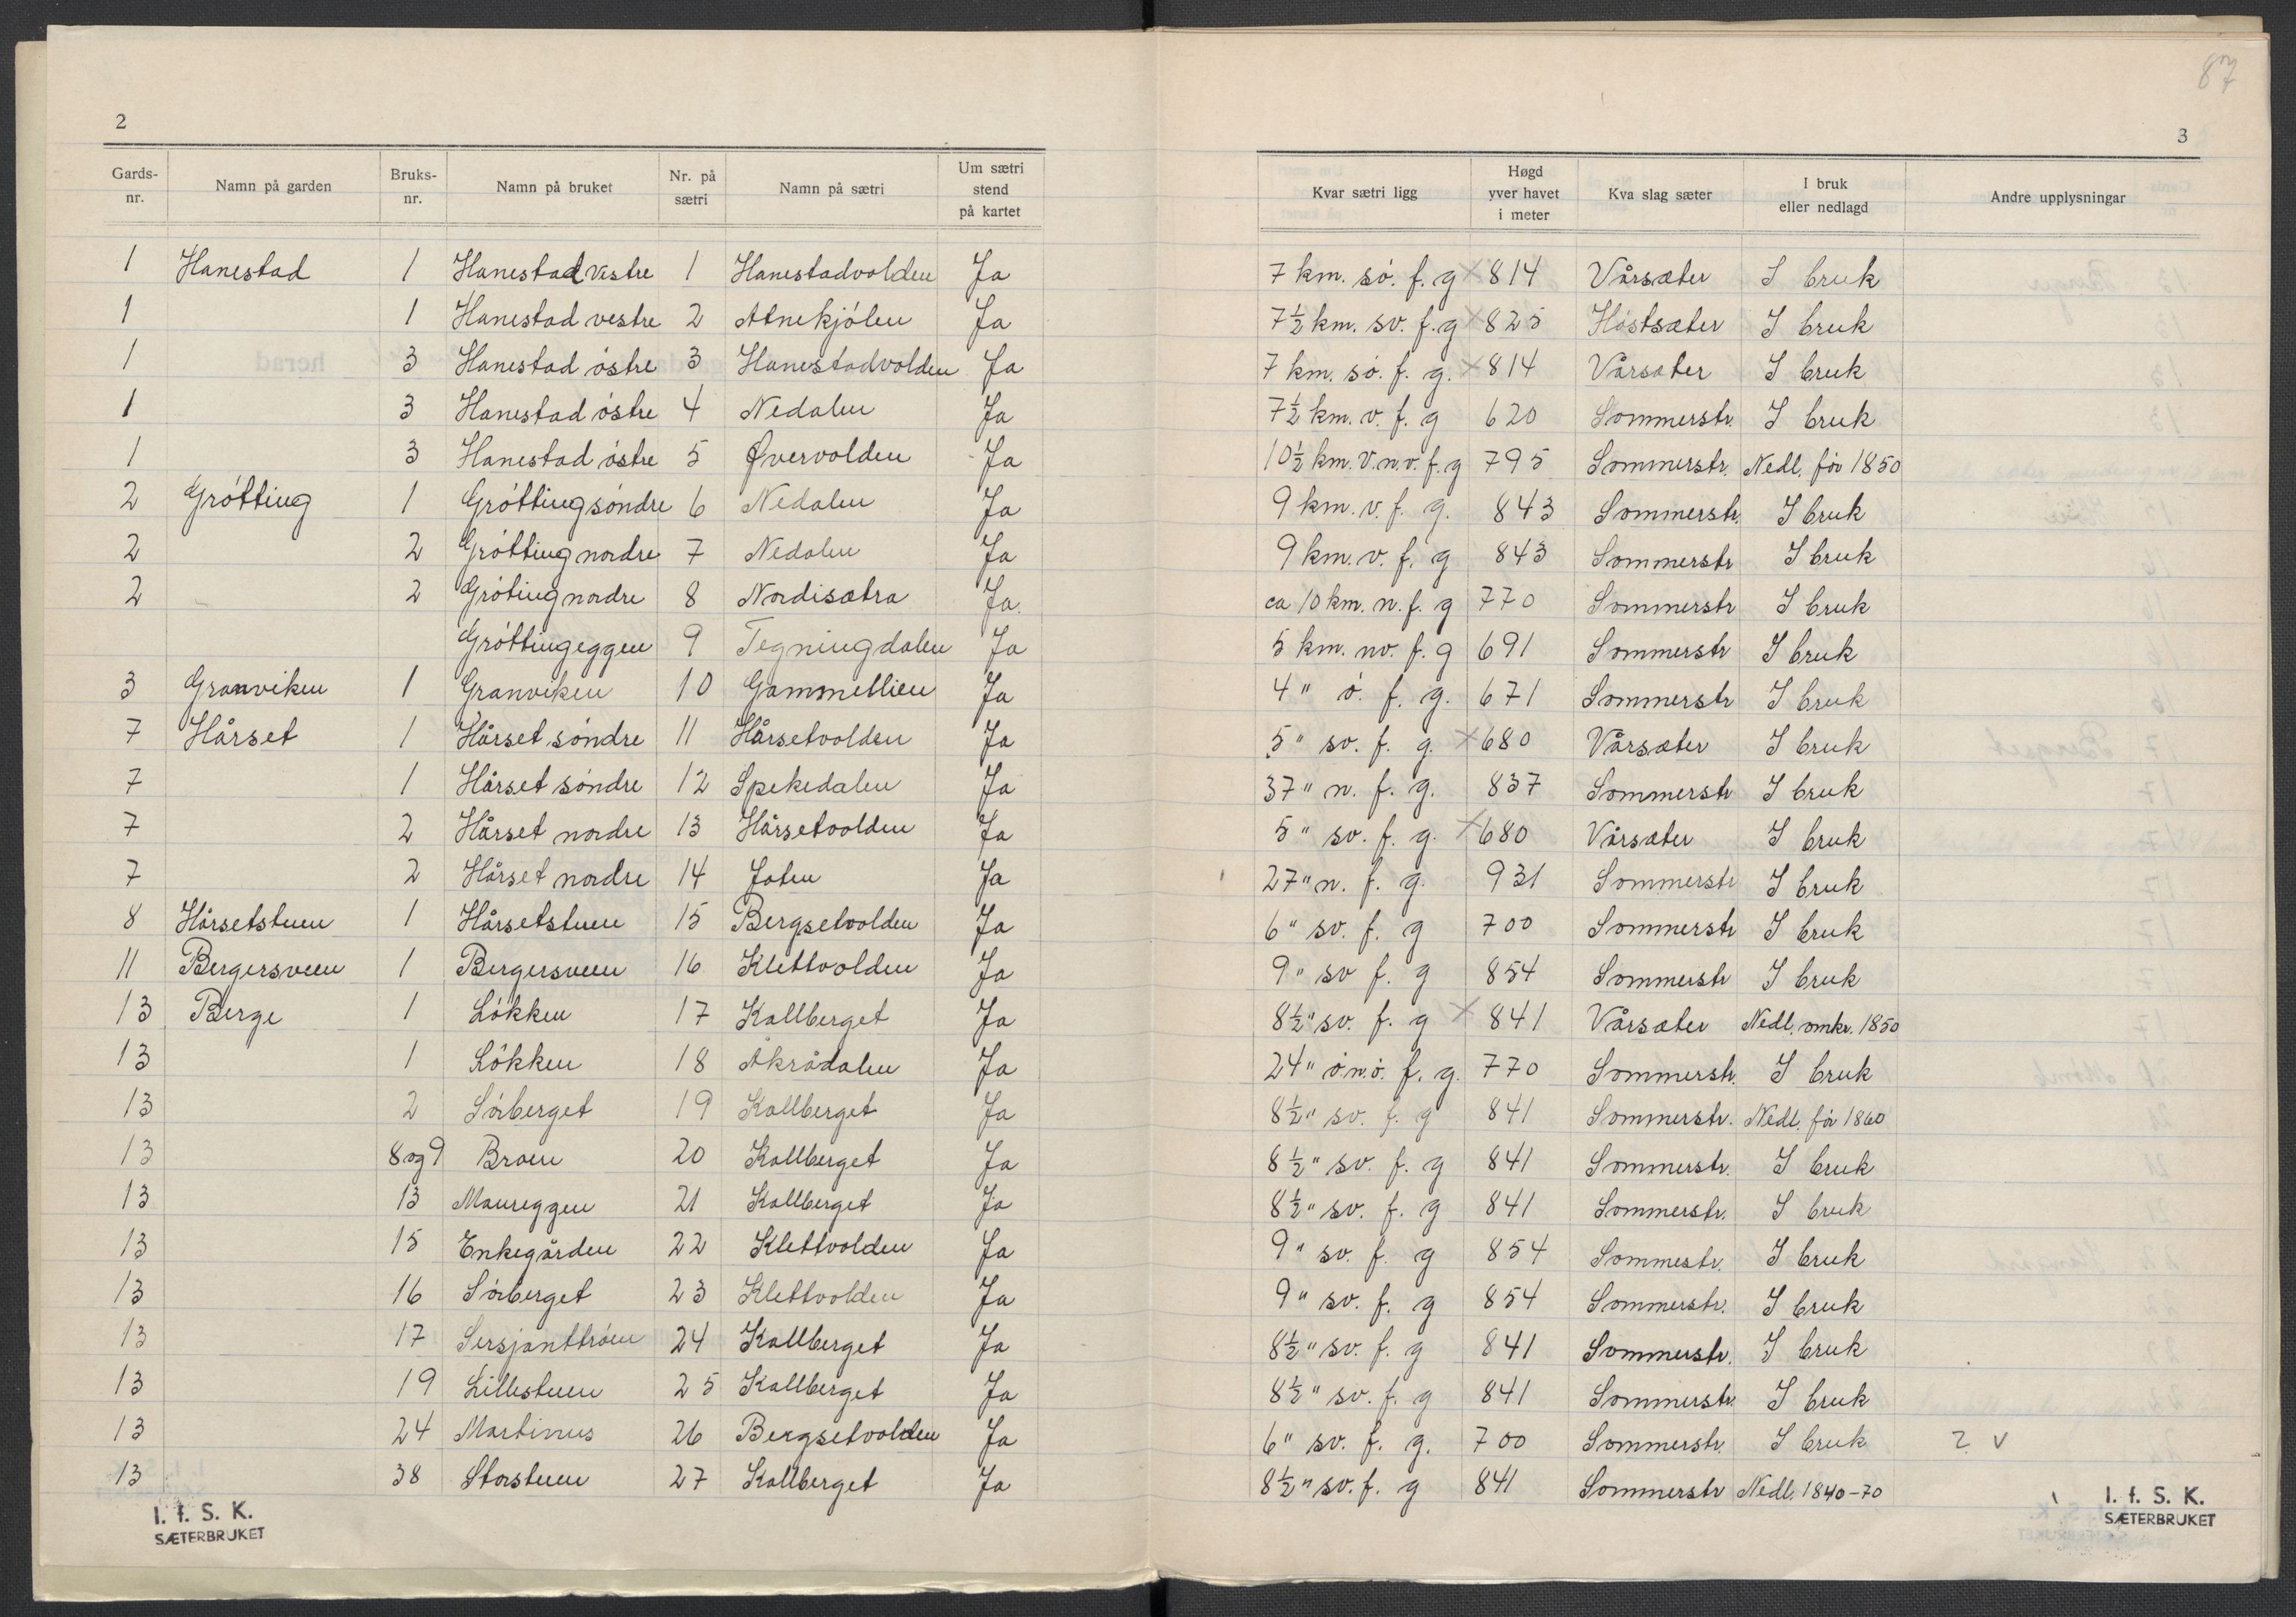 87
2
Gards-nr. Namn på garden Bruks-nr. Namn på bruket Nr. på sætri Namn på sætri Um sætri stend på kartet
1 Hanestad 1 Hanestad vestre 1 Hanestadvolden Ja
1 1 Hanestad vestre 2 Atnekjölen Ja
1 3 Hanestad östre 3 Hanestadvolden Ja
1 3 Hanestad östre 4 Nedalen Ja
1 3 Hanestad östre 5 Øvervolden Ja
2 Grötting 1 Grötting söndre 6 Nedalen Ja
2 2 Grötting nordre 7 Nedalen Ja
2 2 Gröting nordre 8 Nordisætra Ja.
Gröttingeggen 9 Tegningdalen Ja
3 Granviken 1 Granviken 10 Gammellien Ja
7 Hårset 1 Hårset söndre 11 Hårsetvolden Ja
7 1 Hårset söndre 12 Spekedalen Ja
7 2 Hårset nordre 13 Hårsetvolden Ja
7 2 Hårset nordre 14 Joten Ja
8 Hårsetstuen 1 Hårsetstuen 15 Bergsetvolden Ja
11 Bergersveen 1 Bergersveen 16 Klettvolden Ja
13 Berge 1 Lökken 17 Kallberget Ja
13 1 Lökken 18 Åkrådalen Ja
13 2 Sörberget 19 Kallberget Ja
13 8 og 9 Broen 20 Kallberget Ja
13 13 Maureggen 21 Kallberget Ja
13 15 Enkegården 22 Klettvolden Ja
13 16 Sörberget 23 Klettvolden Ja
13 17 Sersjanttröen 24 Kallberget Ja
13 19 Lillestuen 25 Kallberget Ja
13 24 Martinus 26 Bergsetvolden Ja
13 38 Storstuen 27 Kallberget Ja
I. f. S. K.
SÆTERBRUKET
3
Kvar sætri ligg Høgd yver havet i meter Kva slag sæter I bruk eller nedlagd Andre upplysningar
7 km. sö. f. g × 814 Vårsæter I bruk
7½ km. sv. f. g × 825 Höstsæter I bruk
7 km. sö. f. g. × 814 Vårsæter I bruk
7½ km. v. f. g 620 Sommerstr. I bruk
10½ km. v.n.v. f. g 795 Sommerstr. Nedl. för 1850
9 km. v. f. g. 843 Sommerstr. I bruk
9 km. v. f. g 843 Sommerstr I bruk
ca 10 km. n. f. g 770 Sommerstr I bruk
5 km. nv. f. g 691 Sommerstr I bruk
4 " ö. f. g. 671 Sommerstr I bruk
5 " sv. f. g. × 680 Vårsæter I bruk
37 " n. f. g. 837 Sommerstr I bruk
5 " sv. f. g. × 680 Vårsæter I bruk
27 " n. f. g. 931 Sommerstr I bruk
6 " sv. f. g 700 Sommerstr I bruk
9 " sv f. g 854 Sommerstr I bruk
8½ " sv. f. g × 841 Vårsæter Nedl. omkr. 1850
24 " ö.n.ö. f. g. 770 Sommerstr. I bruk
8½ " sv. f. g 841 Sommerstr. Nedl. för 1860
8½ " sv. f. g 841 Sommerstr. I bruk
8½ " sv. f. g 841 Sommerstr. I bruk
9 " sv. f. g 854 Sommestr. I bruk
9 " sv. f. g 854 Sommerstr. I bruk
8½ " sv. f. g 841 Sommerstr. I bruk
8½ " sv. f. g 841 Sommerstr. I bruk
6 " sv. f. g. 700 Sommerstr. I bruk 2 v
8½ " sv. f. g 841 Sommerstr Nedl. 1840-70
I. f. S. K.
SÆTERBRUKET